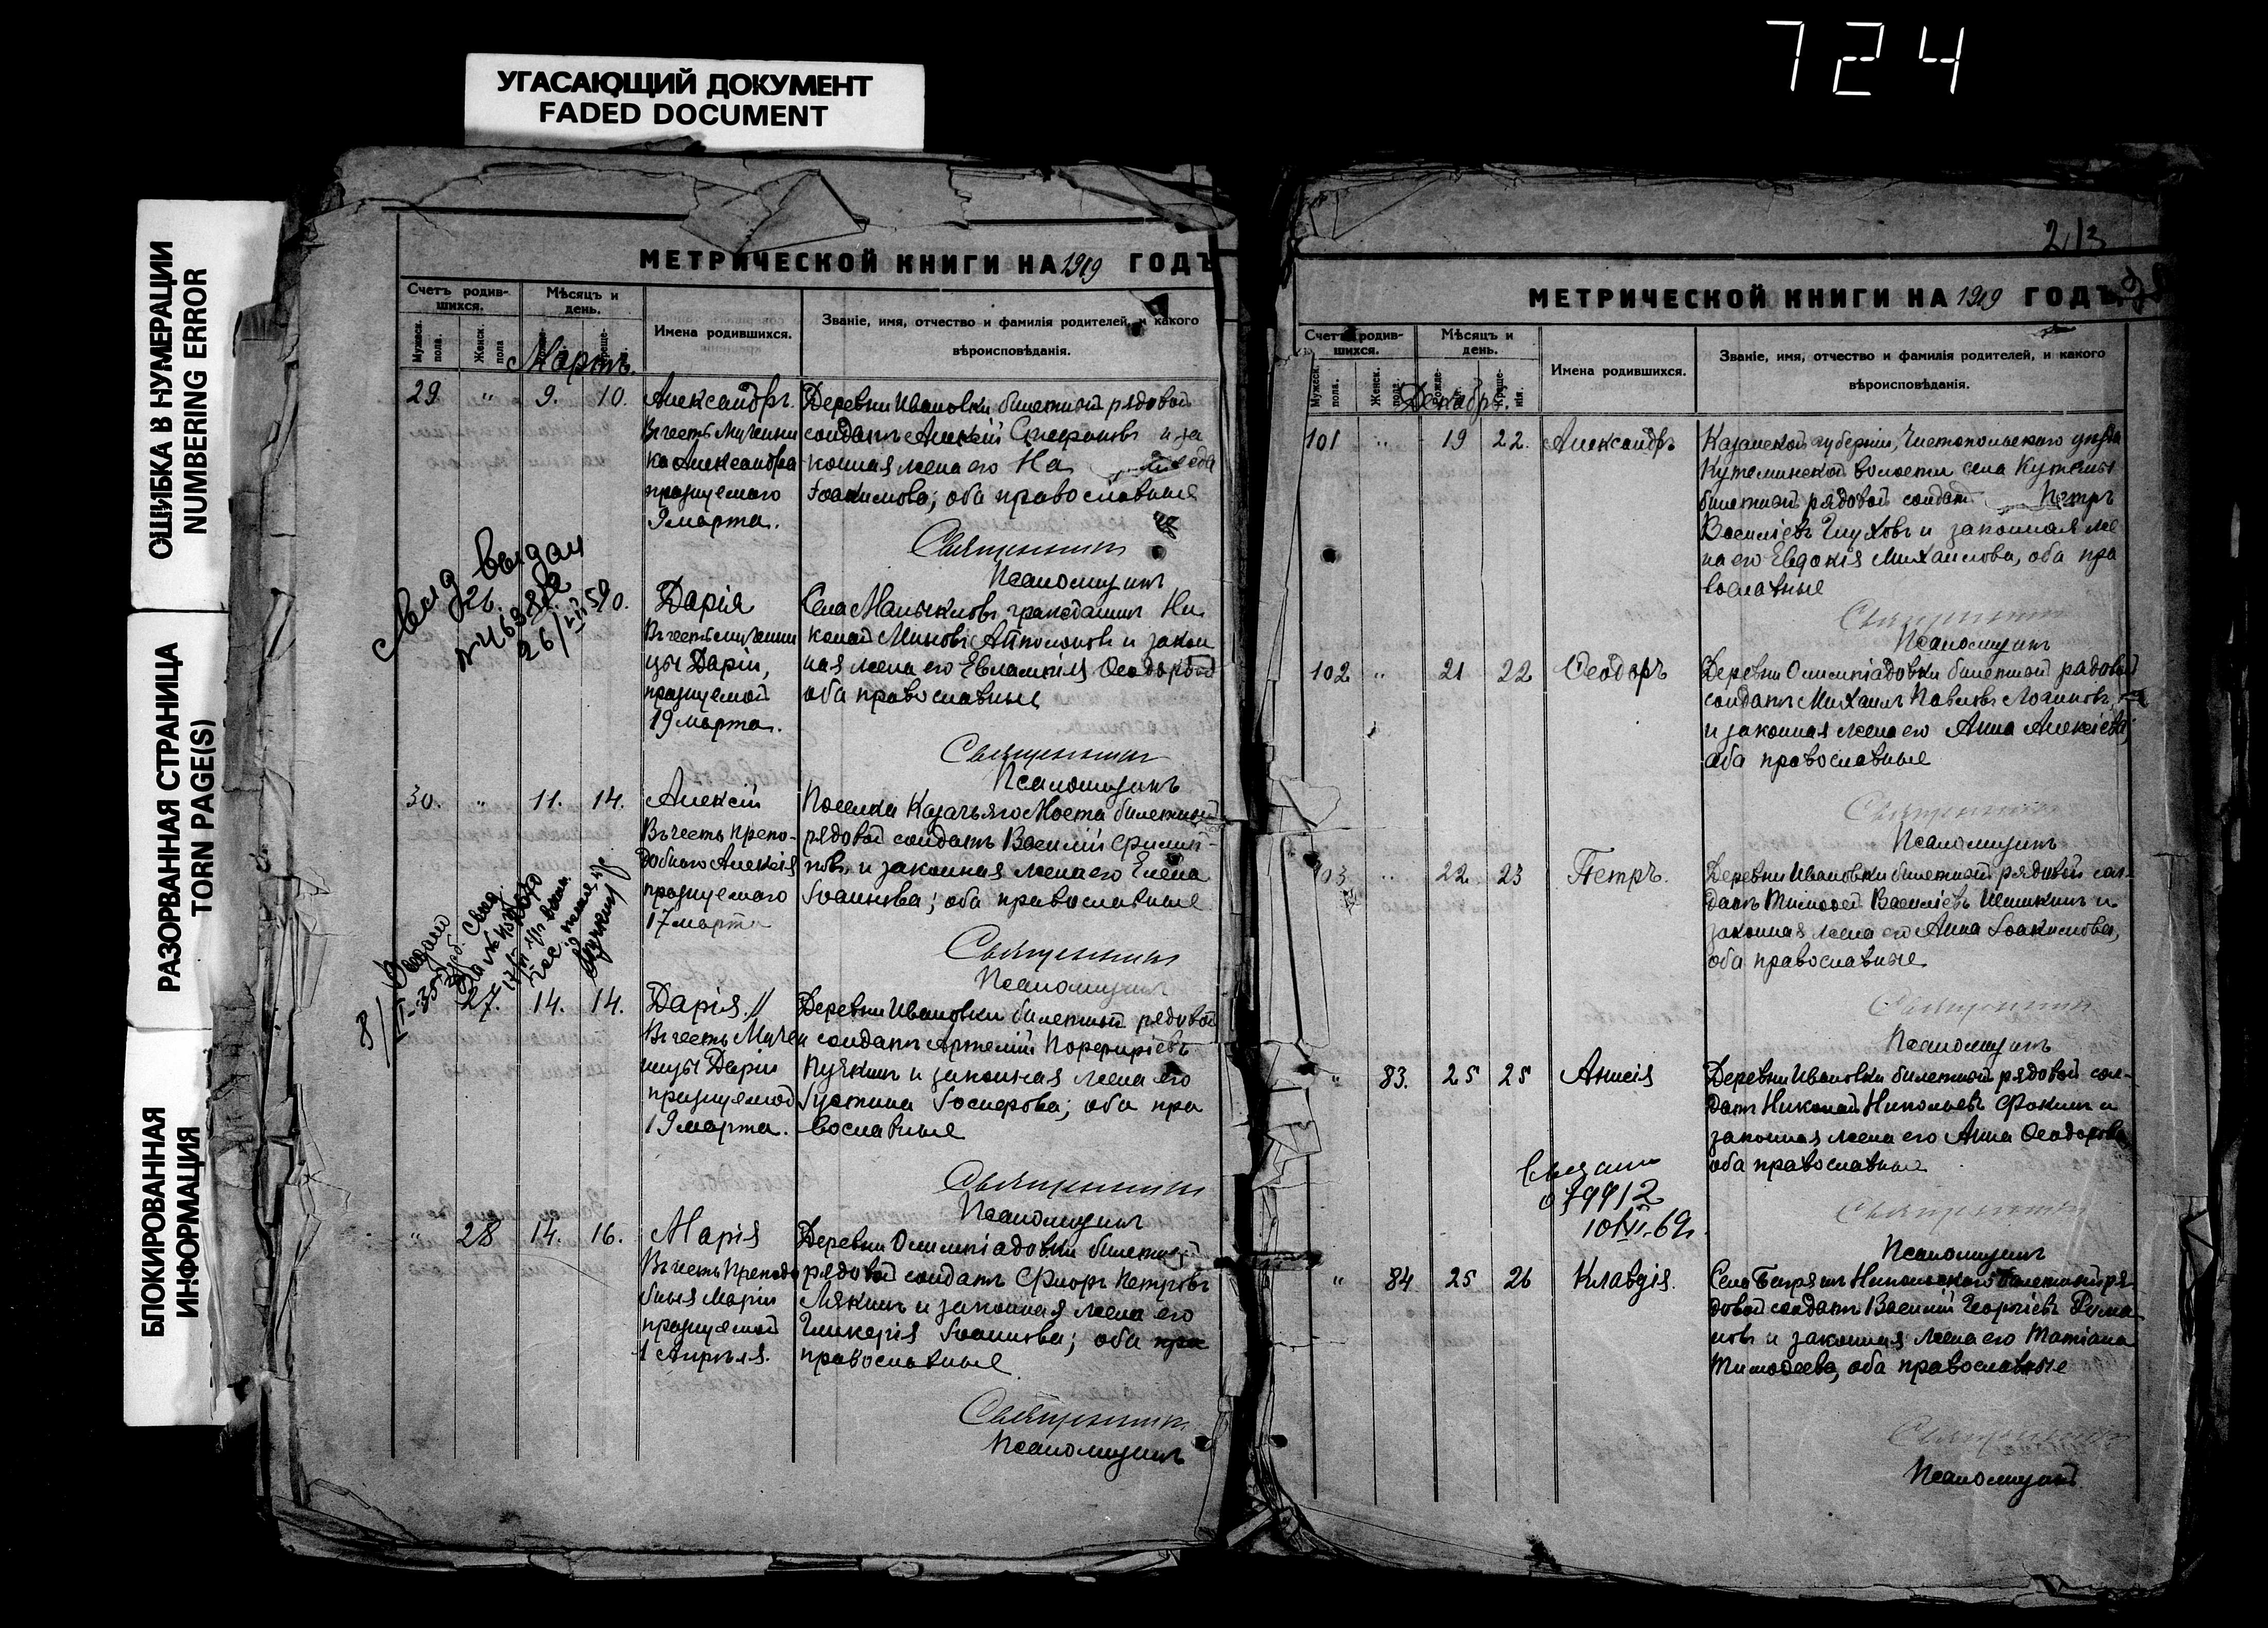 724
УГАСАЮЩИЙ ДОКУМЕНТ
FADED DOCUMENT
ОШИБКА В НУМЕРАЦИИ
NUMBERING ERROR
РАЗОРВАННАЯ СТРАНИЦА
TORN PAGE(S)
БЛОКИРОВАННАЯ
ИНФОРМАЦИЯ
МЕТРИЧЕСКОЙ КНИГИ НА 1919 ГОДЪ
Счетъ родив-
шихся.
Мѣсяцъ и
день.
Мужеск.
пола.
Женск.
пола
Имена родившихся.
Званіе, имя, отчество и фамилія родителей, и какого
вѣроисповѣданія.
Мартъ.
29 " 9. 10.
Александръ.
Въ честь мучени
ка Александра
празнуемаго
9 марта.
Деревни Ивановки билетный рядовой
солдатъ Алексій Стефановъ и за
конная жена его На
Іоакимова; оба православные
Священникъ
Псаломщикъ
Свид выдан
26.
10.
Дарія
Въ честь мучени
цы Даріи,
празнуемой
19 марта.
Села Малыкловъ гражданин Ни
колай Миновъ Антоновъ и закон
ная жена его Евлампія Ѳеодоров
оба православные
Священникъ
Псаломщикъ
30. " 11. 14.
Алексій
Въ честь препо-
добнаго Алексія
празнуемаго
17 марта
Поселка Казачьяго Моста билетный
рядовой солдатъ Василій Филип-
повъ и законная жена его Елена
Іоаннова; оба православные
Священникъ
Псаломщикъ
27. 14. 14.
Дарія. //
Въ честь Мучен
ицы Даріи
празнуемой
19 марта.
Деревни Ивановки билетный рядовой
солдатъ Артемій Порфиріевъ
Пучкинъ и законная жена его
Іустина Іосифова; оба пра
вославные
Священникъ
Псаломщикъ
" 28 14. 16.
Марія
Въ честь Преподо
бныя Маріи
празнуемой
1 Апрѣля.
Деревни Олимпіадовки билетный
рядовой солдатъ Флоръ Петровъ
Лякинъ и законная жена его
Гликерія Іоаннова; оба пра
православные
Священникъ
Псаломщикъ
213
МЕТРИЧЕСКОЙ КНИГИ НА 1919 ГОДЪ
Счетъ родив-
шихся.
Мѣсяцъ и
день.
Мужеск.
пола.
Женск.
пола.
Рожде-
Креще-
нія.
Имена родившихся.
Званіе, имя, отчество и фамилія родителей, и какого
вѣроисповѣданія.
Декабрь.
101 " 19 22.
Александръ
Казанской губерніи, Чистопольскаго уѣзда
Кутеминской волости села Кутемы
билетный рядовой солдат Петръ
Василіевъ Глуховъ и законная же
на его Евдокія Михаилова, оба пра
вославные
Священникъ
Псаломщикъ
102 " 21 22
Ѳеодоръ
Деревни Олимпіадовки билетной рядовой
солдатъ Михаилъ Павловъ Логиновъ,
и законная жена его Анна Алексіева;
оба православные
Священникъ
Псаломщикъ
103 " 22 23
Петръ.
Деревни Ивановки билетный рядовой сол-
датъ Тимоѳей Василіевъ Шишкинъ и
законная жена его Анна Іоакимова,
оба православные
Священникъ
Псаломщикъ
" 83. 25 25
Анисія
Деревни Ивановки билетной рядовой сол-
датъ Николай Никольевъ Фокинъ и
законная жена его Анна Ѳеодорова
оба православные
Священникъ
Псаломщикъ
10/VI-69г.
" 84 25 26
Клавдія.
Село Багряшъ Никольскаго билетный ря
довой солдатъ Василій Георгіевъ Рома
новъ и законная жена его Татіана
Тимоѳеева, оба православные
Священникъ
Псаломщикъ